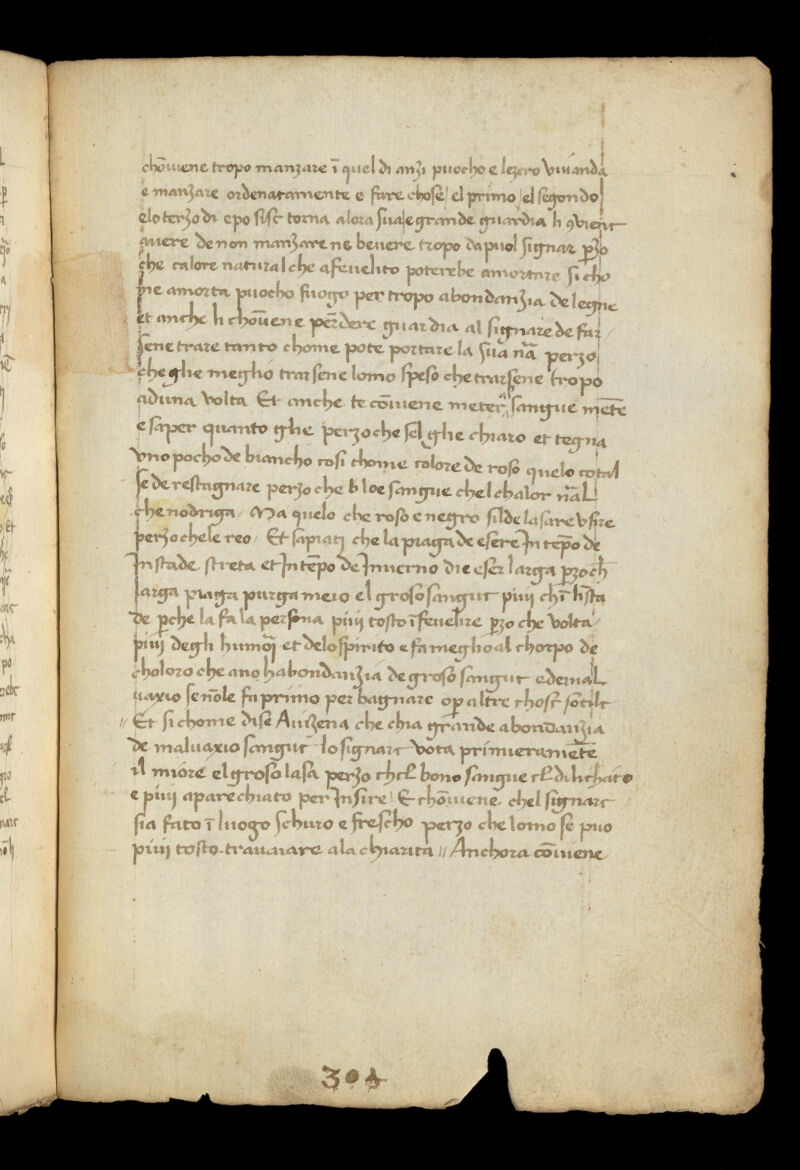 chōviene tropo manzare ī quel di anzi puocho e lezero vivianda
e manzare ordenatamente e fare chose / el primo / el segondo /
elo terzo di e po si se torna alora sua / e grande guardia li 9vient
avere de non manzare ne bevere tropo dapuol signar p̄zo
che calore natural che afevelito poterebe amortare si cho
me amorta puocho fuogo per tropo abondanzia de legne
et anche li chōvene pērdere guardia al signare de far /
sene trare tanto chome pote portare la sua nāa perzo
che ghe meglio trarsene lomo speso che trarsene tropo
aduna volta Et anche te cōviene meter al sangue mēte
e saper quanto ghe perzo che sel ghe chiaro et tegna
uno pocho de biancho cosi chome colore de roso quelo cotal
se de restagnare perzo che loe sangue chel chalor nāal
che nodriga / Ma quelo che roso e negro sil de lasare usire
perzo chele reo / Et sapiati che la piaga de esere In tēpo de
Instade streta et In tēpo de Inverno die eser larga p̄zoch̄
larga piaga purga meio el groso sangue piui chī li sta
de p̄che la fa la persona piui tosto ī fevelire p̄zo che volta
piui degli humorī et delo spirito e fa meglio al chorpo de
choloro che ano habondanzia de groso sangue e de mal
vaxio se nōle fa primo per bagnare op̄ altre chose sotile
// Et si chome dise Avizena che chia grande abondanzia
de malvaxio sangue lo signare vota primieramēte
il miore el groso lasa perzo chel bono sangue el dilichato
e piui aparechiato per Insire / E chōviene chel signare
sia fato ī luogo schuro e frescho perzo che lomo se puo
piui tosto travaiare ala chiarita // Anchora cōviene
304